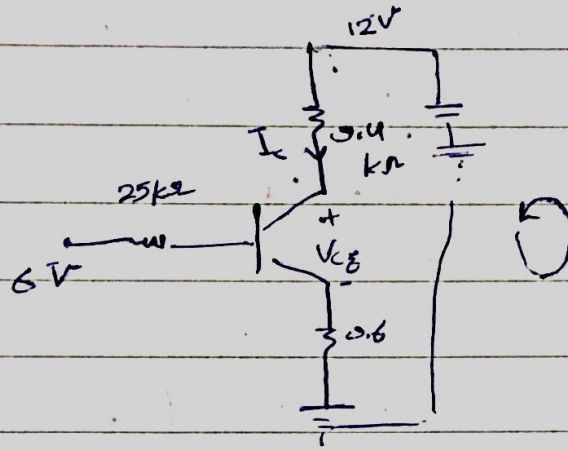 12V
0.4
Ic
kΩ
25kΩ
+
6 V
VCE
-
0.6